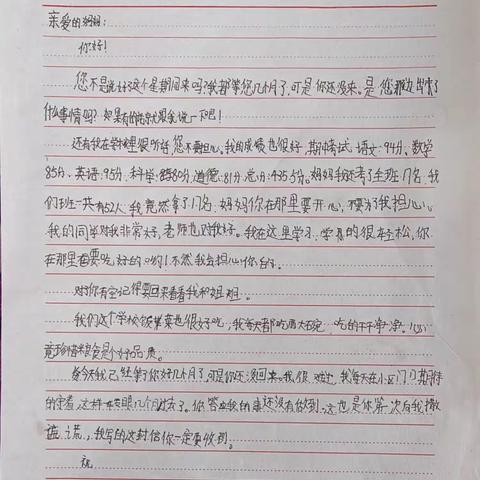 亲爱的妈妈:
你好!
您不是说好这个星期回来吗?我都等您几个月了,可是你还没来。是您那边出啥了
什么事情吗?如果有的话就跟我说一下吧!
还有我在学校里很听话,您不要担心。我的成绩也很好,期中考试,语文:94分、数学
85分、英语:95分、科学:80分、道德:81分、总分:435.5分。妈妈我还考了全班17名,我
们班一共有52人,我竟然拿了17名,妈妈你在那里要开心,不要为了我担心。
我的同学对我非常好,老师也对我好。我在这里学习、学习的很轻松,你
在那里要吃好的!不然我会担心你的。
对你有空记得要回来看看我和姐姐。
我们这个学校饭菜也很好吃,我每天都吃两大碗,吃的干干净净。心
竟珍惜粮食是个好品质。
今天我已经等了你好几个月了,可是你还没回来。我很难过,我每天在小区门口期待
的等着,这样一眨眼几个月过去了。你答应我的事还没有做到,这也是你第一次向我撒
谎,我写的这封信你一定要收到。
祝